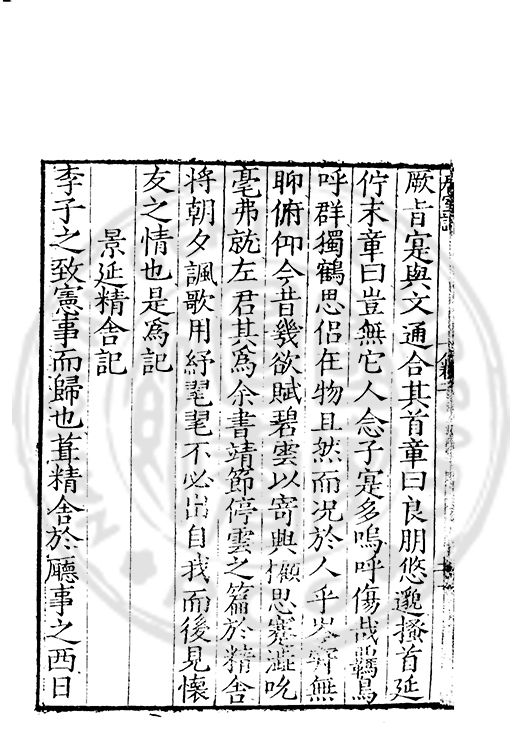 厥旨寔與文通合其首章曰良朋悠邈搔首延
佇末章曰豈無它人念子寔多嗚呼傷哉羈鳥
呼群獨鶴思侶在物且然而况於人乎岑寂無
聊俯仰今昔幾欲賦碧雲以寄興懶思蹇澁吮
毫弗就左君其爲余書靖節停雲之篇於精舍
將朝夕諷歌用紓毣毣不必出自我而後見懷
友之情也是爲記
景延精舍記
李子之致憲事而歸也葺精舍於廳事之西日